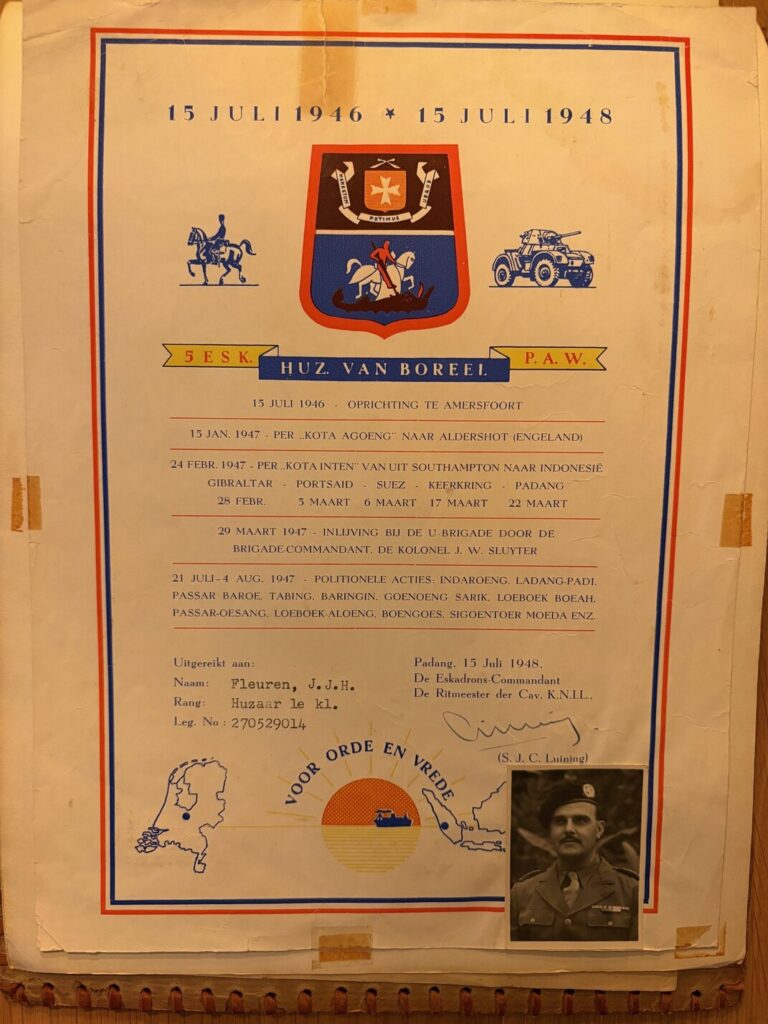 15 JULI 1946 * 15 JULI 1948
POTIMUS
5 ESK.
HUZ. VAN BOREEL
P. A. W.
15 JULI 1946 - OPRICHTING TE AMERSFOORT
15 JAN. 1947 - PER „KOTA AGOENG" NAAR ALDERSHOT (ENGELAND)
24 FEBR. 1947 - PER „KOTA INTEN" VAN UIT SOUTHAMPTON NAAR INDONESIË
GIBRALTAR - PORTSAID - SUEZ - KEERKRING - PADANG
28 FEBR. 5 MAART 6 MAART 17 MAART 22 MAART
29 MAART 1947 - INLIJVING BIJ DE U-BRIGADE DOOR DE
BRIGADE-COMMANDANT, DE KOLONEL J. W. SLUYTER
21 JULI-4 AUG. 1947 - POLITIONELE ACTIES: INDAROENG, LADANG-PADI,
PASSAR BAROE, TABING, BARINGIN, GOENOENG SARIK, LOEBOEK BOEAH,
PASSAR-OESANG, LOEBOEK-ALOENG, BOENGOES, SIGOENTOER MOEDA ENZ.
Uitgereikt aan:
Naam: Fleuren, J.J.H.
Rang: Huzaar 1e kl.
Leg. No: 270529014
Padang, 15 Juli 1948.
De Eskadrons-Commandant
De Ritmeester der Cav. K.N.I.L.,
(S. J. C. Luining)
VOOR ORDE EN VREDE